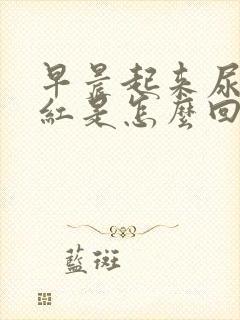 早晨起来尿
紅是怎麼回
藍斑